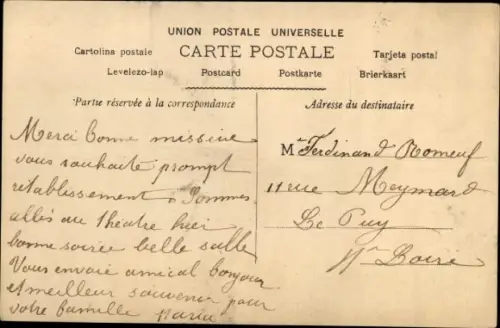 UNION POSTALE UNIVERSELLE
Cartolina postale CARTE POSTALE Tarjeta postal
Levelezo-lap Postcard Postkarte Brierkaart
Partie réservée à la correspondance
Adresse du destinataire
Merci bonne missive
vous souhaite prompt
rétablissement. Sommes
allés au théâtre hier
bonne soirée belle salle
Vous envoie amical bonjour
et meilleur souvenir pour
votre famille Maria
M Ferdinand Romeuf
11 rue Meymard
Le Puy
Hte Loire